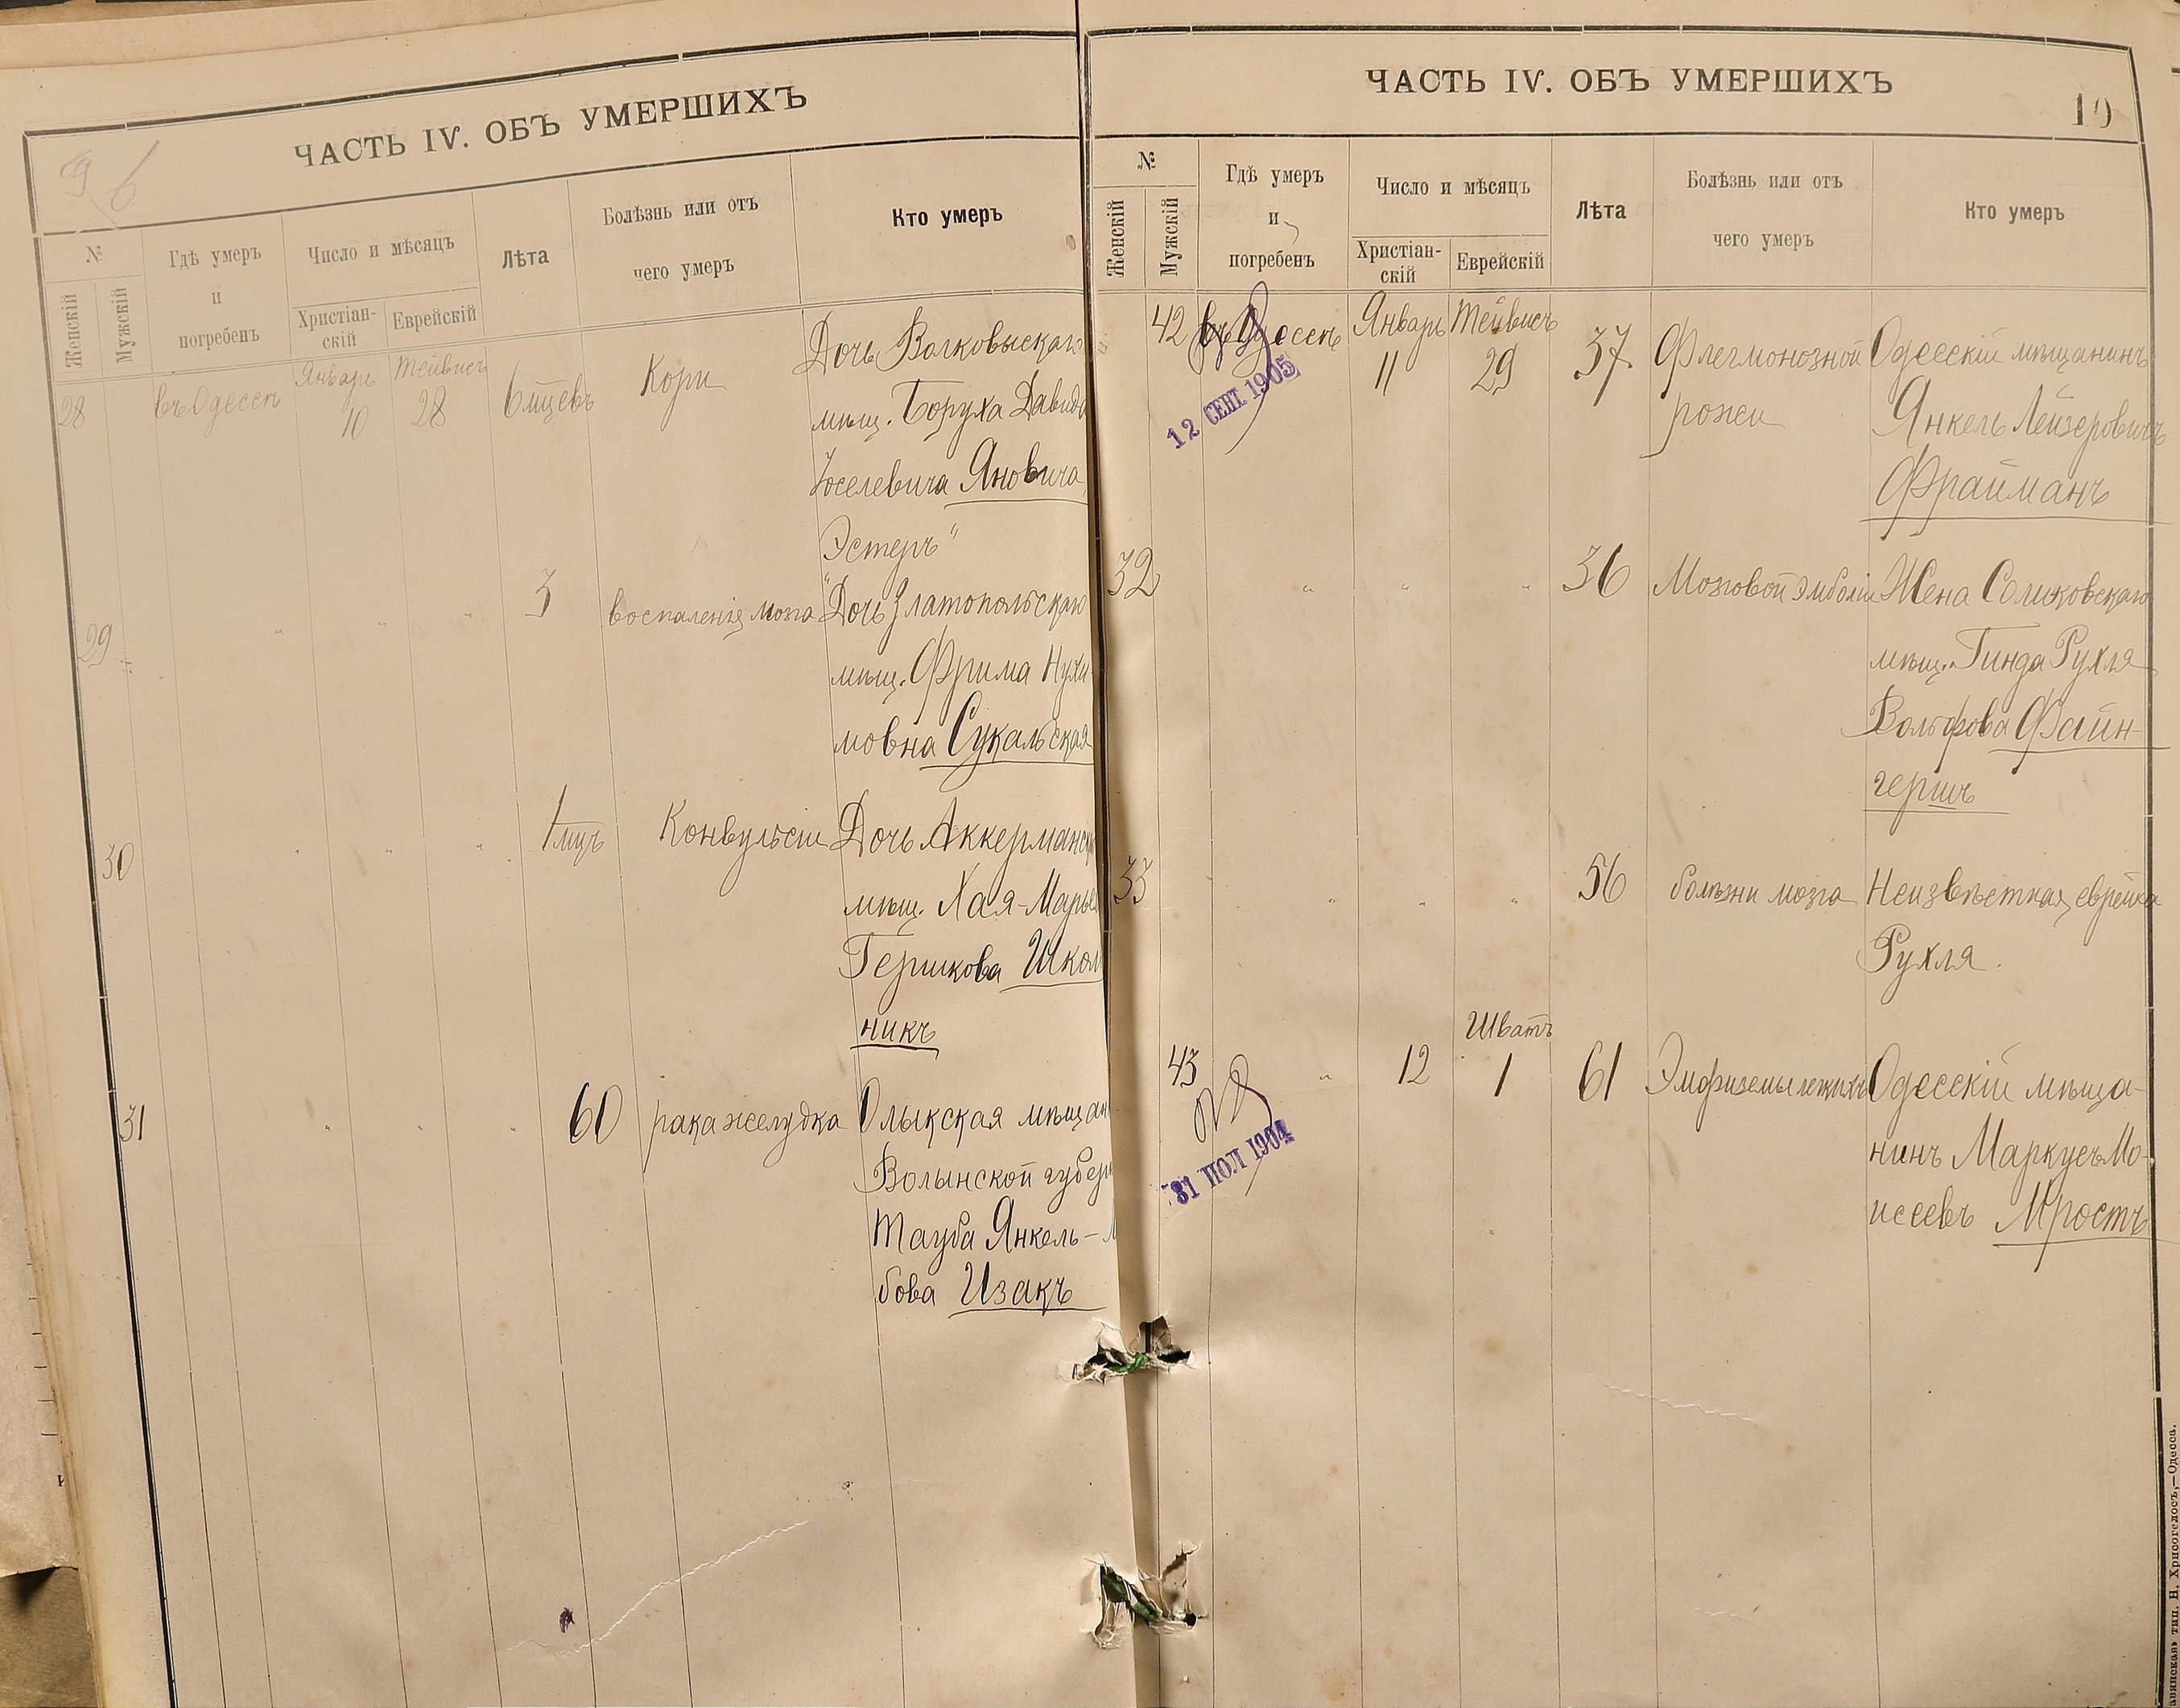 ЧАСТЬ IV. ОБЪ УМЕРШИХЪ
№
Женскій
Мужскій
Гдѣ умеръ
и
погребенъ
Число и мѣсяцъ
Христіан-
скій
Еврейскій
Лѣта
Болѣзнь или отъ
чего умеръ
Кто умеръ
28
въ Одессѣ
Январь
10
Тейвисъ
28
6 мцевъ
Кори
Дочь Волковыскаго
мѣщ. Боруха Давида
Іоселевича Яновича,
"Эстеръ"
29
"
"
"
3
воспаленія мозга
Дочь Златопольскаго
мѣщ. Фрима Нухи-
мовна Сукальская
30
"
"
"
1 мцъ
Конвульсіи
Дочь Аккерманск
мѣщ. Хая-Марьям
Гершкова Школ
никъ
31
"
"
"
60
рака желудка
Олыкская мѣщан
Волынской губерн
Тауба Янкель-Л
бова Изакъ
ЧАСТЬ IV. ОБЪ УМЕРШИХЪ
10
№
Женскій
Мужскій
Гдѣ умеръ
и
погребенъ
Число и мѣсяцъ
Христіан-
скій
Еврейскій
Лѣта
Болѣзнь или отъ
чего умеръ
Кто умеръ
42
въ Одессѣ
12 СЕНТ. 1905
Январь
11
Тейвисъ
29
37
Флегмонозной
рожи
Одесскій мѣщанинъ
Янкель Лейзеровичъ
Фрайманъ
32
"
"
"
36
Мозговой эмболіи
Жена Соликовскаго
мѣщ. Гинда Рухля
Вольфова Файн-
гершъ
33
"
"
"
56
болѣзни мозга
Неизвѣстная еврейка
Рухля.
43
"
31 ІЮЛ 1904
12
Шватъ
1
61
Эмфиземы легкихъ
Одесскій мѣща-
нинъ Маркусъ Мо-
исеевъ Мростъ
тип. Н. Хрисогелосъ,—Одесса.